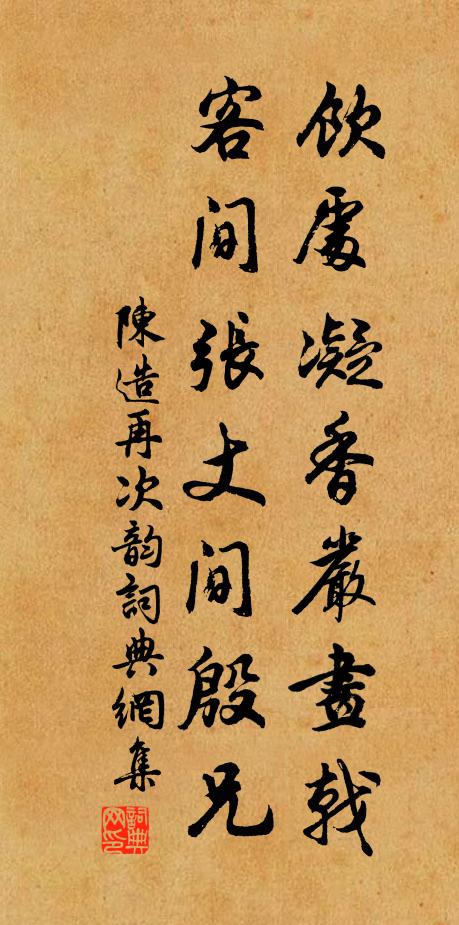 飲處凝香嚴畫戟
客間張丈間殷兄
陳造再次韵詞典網集
詞典网印